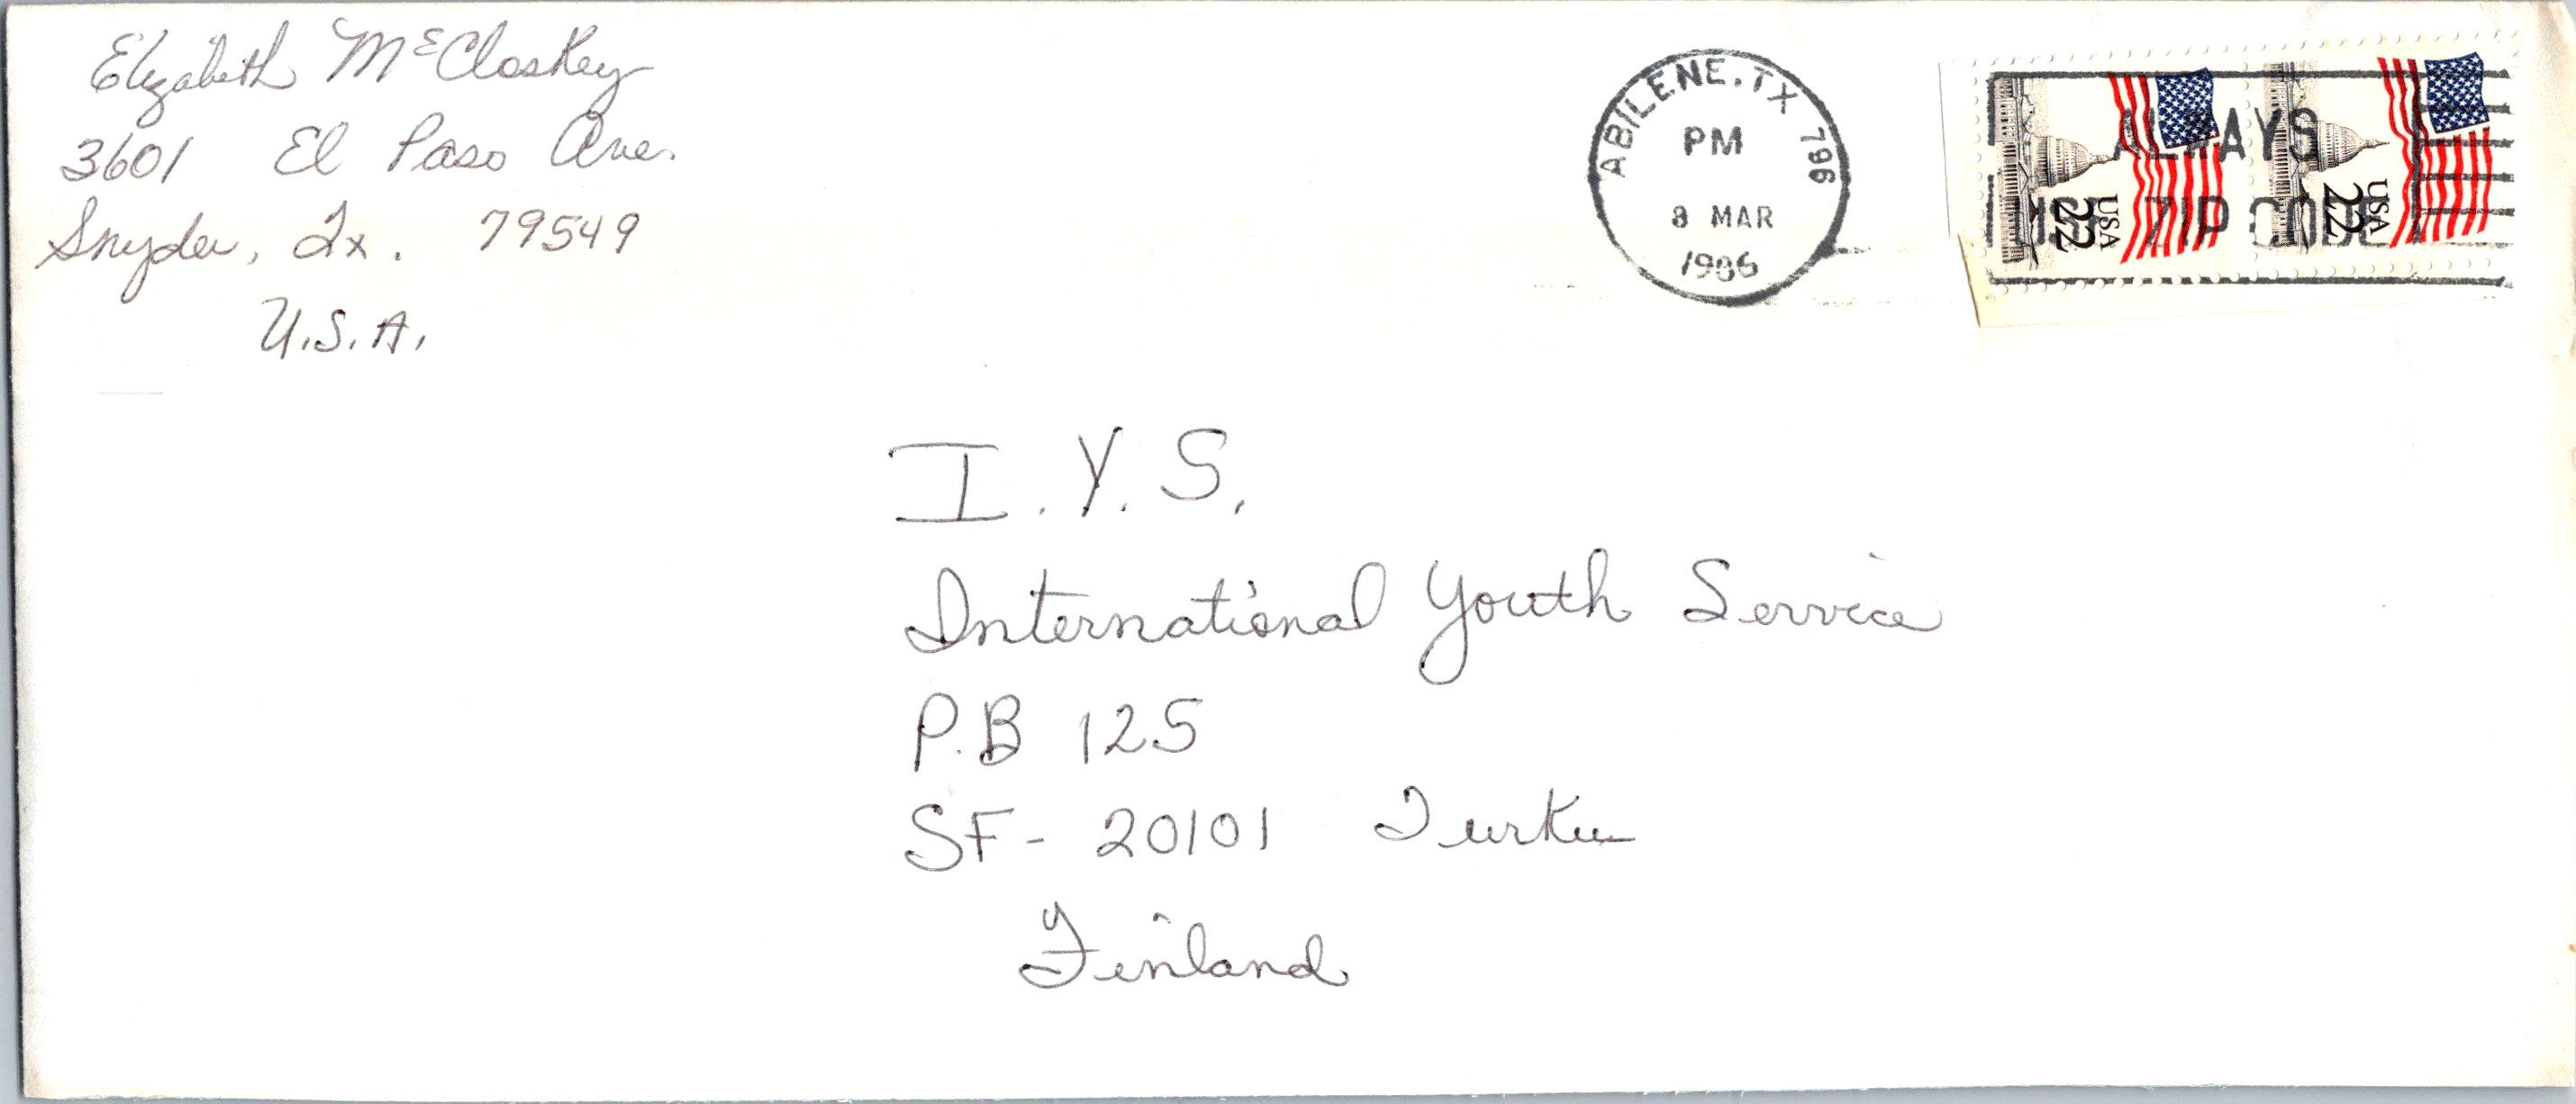 Elizabeth McCloskey
3601 El Paso Ave.
Snyder, Tx. 79549
U.S.A.
ABILENE, TX 796
PM
8 MAR
1986
ALWAYS
USE ZIP CODE
USA 22
USA 22
I.Y.S.
International Youth Service
P.B 125
SF- 20101 Turku
Finland